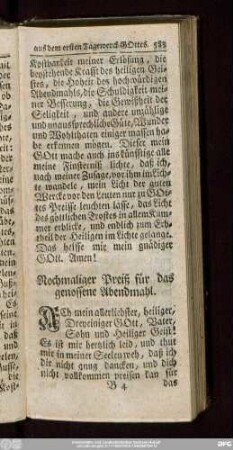 aus dem ersten Tagewerck GOttes. 583
Kostbarkeit meiner Erlösung, die
beystehende Krafft des heiligen Gei-
stes, die Hoheit des hochwürdigen
Abendmahls, die Schuldigkeit mei-
ner Besserung, die Gewißheit der
Seligkeit, und andere unzählige
und unaussprechliche Güte, Wunder
und Wohlthaten einiger massen ha-
be erkennen mögen. Dieser mein
GOtt mache auch ins künfftige alle
meine Finsterniß lichte, daß ich,
nach meiner Zusage, vor ihm im Lich-
te wandele, mein Licht der guten
Wercke vor den Leuten nur zu GOt-
tes Preiße leuchten lasse, das Licht
des göttlichen Trostes in allem Kum-
mer erblicke, und endlich zum Erb-
theil der Heiligen im Lichte gelange.
Das helffe mir mein gnädiger
GOtt. Amen!
Nochmaliger Preiß für das
genossene Abendmahl.
ACh mein allerliebster, heiliger,
Dreyeiniger GOtt, Vater,
Sohn und Heiliger Geist!
Es ist mir hertzlich leid, und thut
mir in meiner Seelen weh, daß ich
dir nicht gnug dancken, und dich
nicht vollkommen preisen kan für
B 4 das